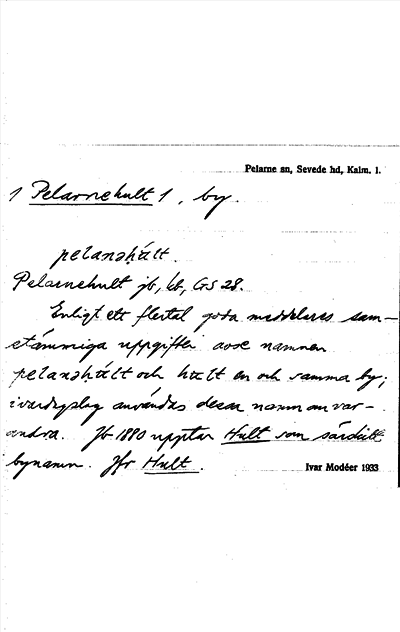 Pelarne sn, Sevede hd, Kalm. l.
1 Pelarnehult 1, by.
pelanəhʉ́lt.
Pelarnehult jb, kb, GS 28.
Enligt ett flertal goda meddelares sam-
stämmiga uppgifter avse namnen
pelanəhʉ́lt och hʉlt en och samma by;
i vardagslag användas dessa namn om var-
andra. Jb 1880 upptar Hult som särskilt
bynamn. Jfr Hult.
Ivar Modéer 1933